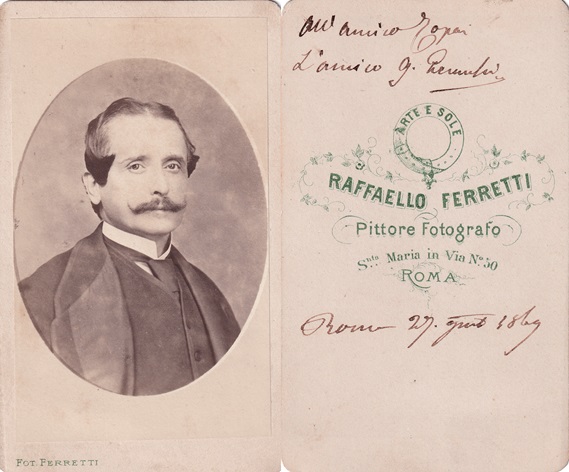 FOT. FERRETTI
all'amico
L'amico G.
ARTE E SOLE
RAFFAELLO FERRETTI
Pittore Fotografo
Sta. Maria in Via No. 50
ROMA
Roma 27. 1869